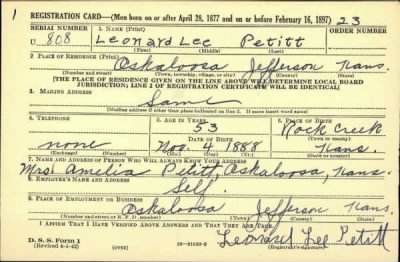 1
REGISTRATION CARD—(Men born on or after April 28, 1877 and on or before February 16, 1897) 23
SERIAL NUMBER 1. NAME (Print) ORDER NUMBER
U 808 Leonard Lee Petitt
(First) (Middle) (Last)
2. PLACE OF RESIDENCE (Print)
Oskaloosa Jefferson Kans.
(Number and street) (Town, township, village, or city) (County) (State)
[THE PLACE OF RESIDENCE GIVEN ON THE LINE ABOVE WILL DETERMINE LOCAL BOARD
JURISDICTION; LINE 2 OF REGISTRATION CERTIFICATE WILL BE IDENTICAL]
3. MAILING ADDRESS
Same
[Mailing address if other than place indicated on line 2. If same insert word same]
4. TELEPHONE 5. AGE IN YEARS 6. PLACE OF BIRTH
53 Rock Creek
DATE OF BIRTH (Town or county)
none Nov. 4 1888 Kans.
(Exchange) (Number) (Mo.) (Day) (Yr.) (State or country)
7. NAME AND ADDRESS OF PERSON WHO WILL ALWAYS KNOW YOUR ADDRESS
Mrs. Amelia Petitt, Oskaloosa, Kans.
8. EMPLOYER'S NAME AND ADDRESS
Self
9. PLACE OF EMPLOYMENT OR BUSINESS
Oskaloosa Jefferson Kans.
(Number and street or R. F. D. number) (Town) (County) (State)
I AFFIRM THAT I HAVE VERIFIED ABOVE ANSWERS AND THAT THEY ARE TRUE.
D. S. S. Form 1
(Revised 4-1-42) (over) 16—21630-2 Leonard Lee Petitt
(Registrant's signature)